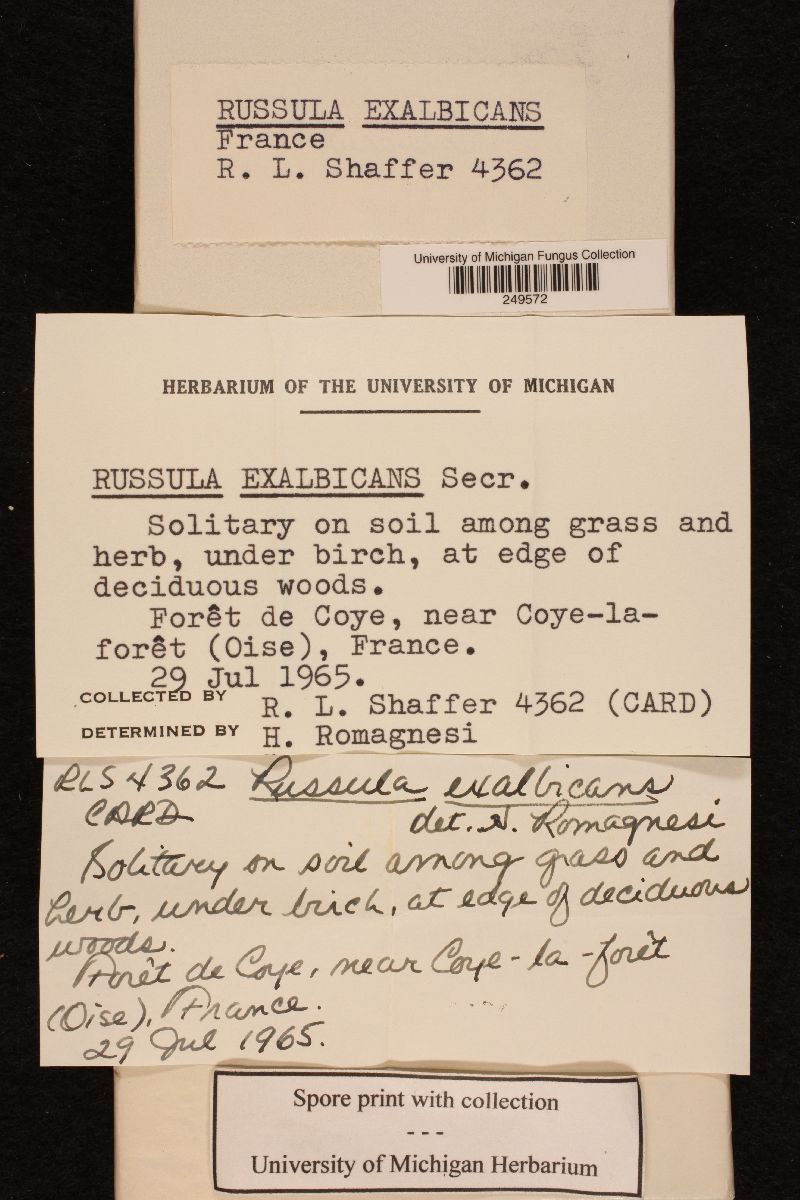 RUSSULA EXALBICANS
France
R. L. Shaffer 4362
University of Michigan Fungus Collection
249572
HERBARIUM OF THE UNIVERSITY OF MICHIGAN
RUSSULA EXALBICANS Secr.
Solitary on soil among grass and
herb, under birch, at edge of
deciduous woods.
Forêt de Coye, near Coye-la-
forêt (Oise), France.
29 Jul 1965.
COLLECTED BY R. L. Shaffer 4362 (CARD)
DETERMINED BY H. Romagnesi
RLS 4362 Russula exalbicans
CARD det. H. Romagnesi
Solitary on soil among grass and
herb, under birch, at edge of deciduous
woods.
Forêt de Coye, near Coye-la-forêt
(Oise), France.
29 Jul 1965.
Spore print with collection
---
University of Michigan Herbarium